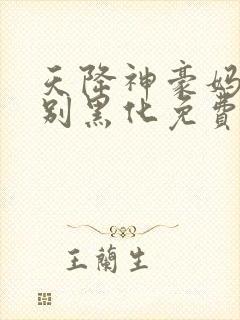 天降神豪妈
别黑化免费
王兰生